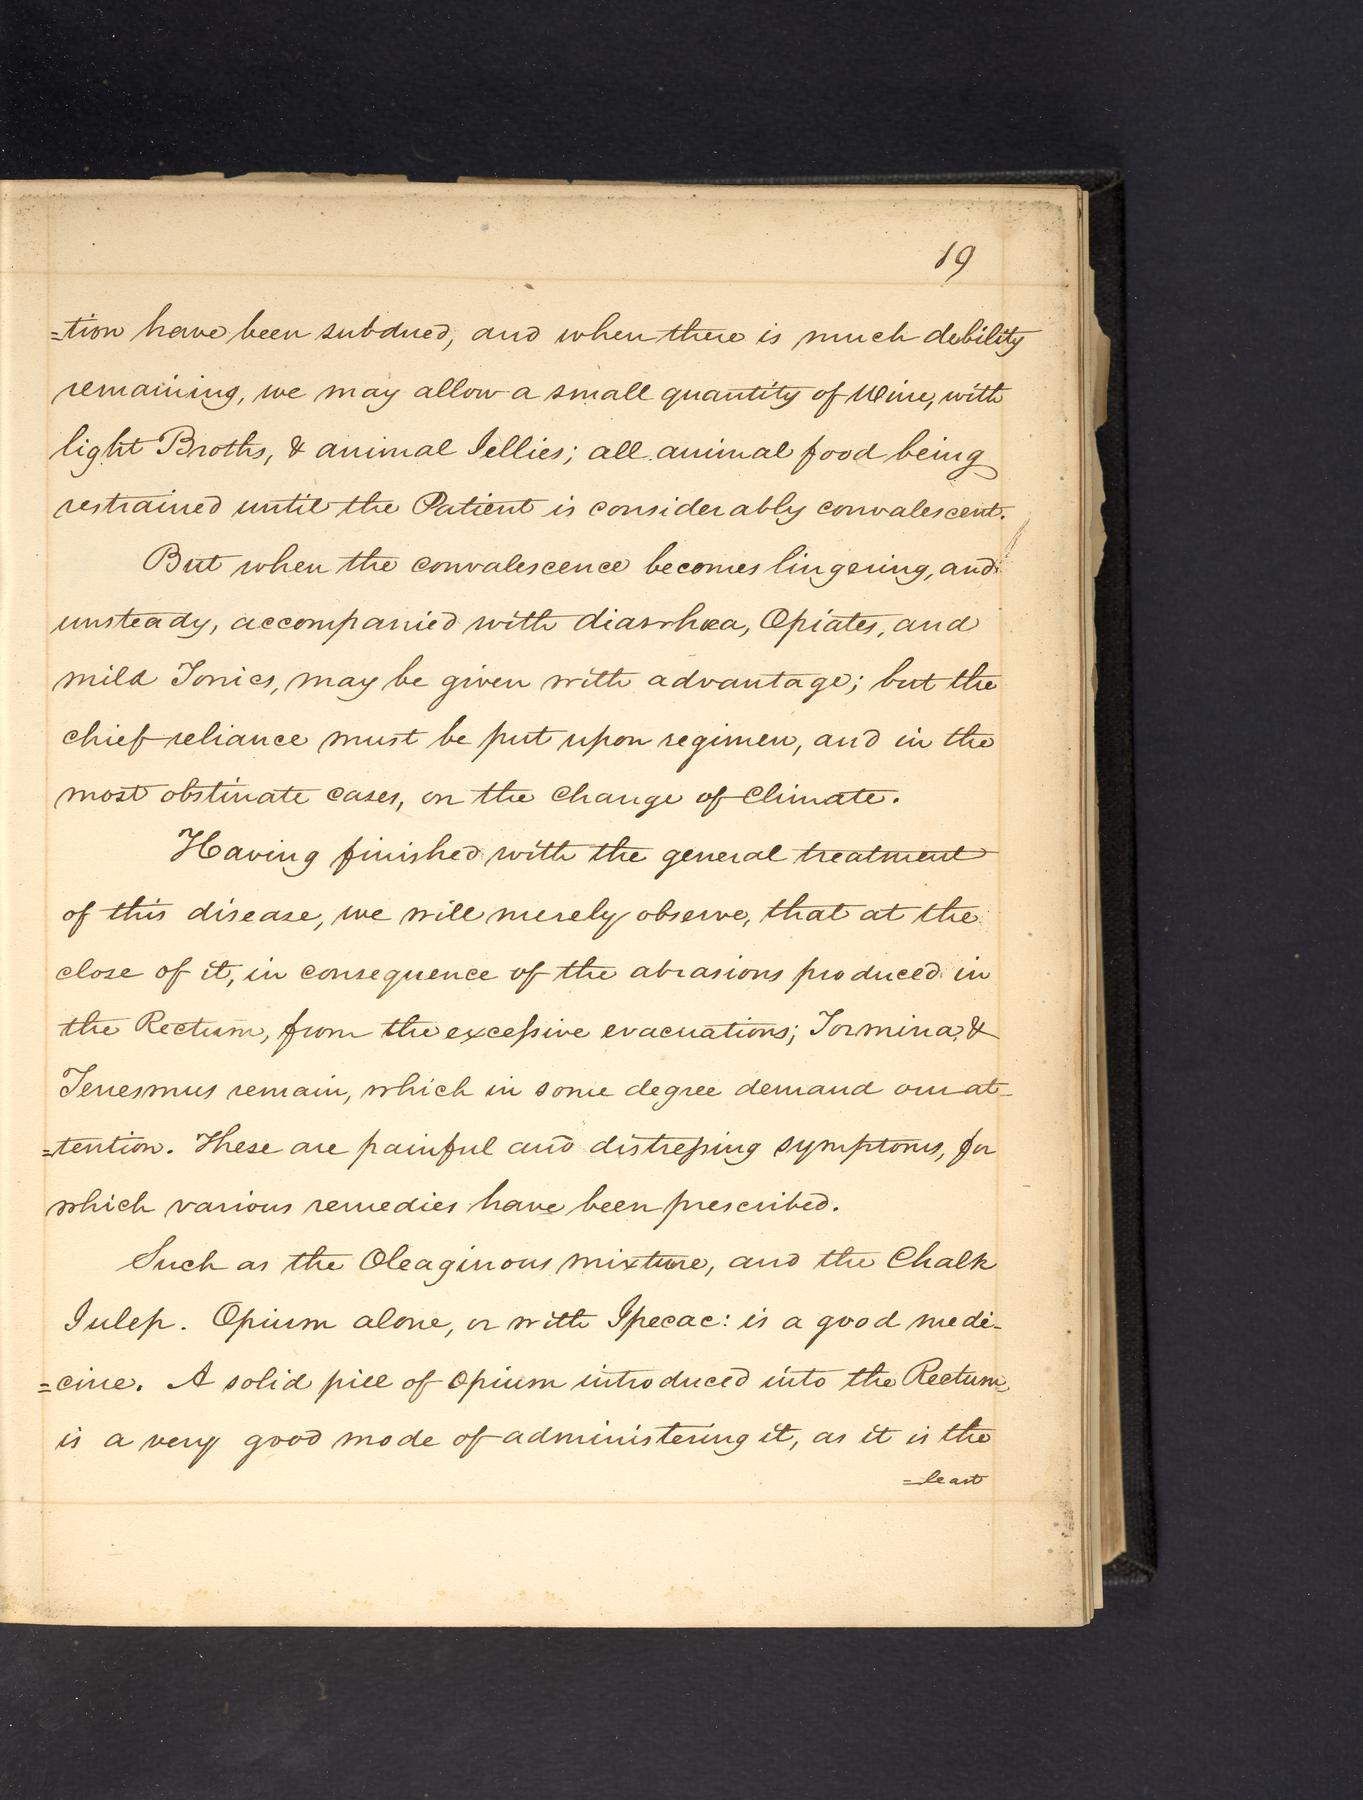 19
=tion have been subdued, and when there is much debility
remaining, we may allow a small quantity of Wine, with
light Broths, & animal Jellies; all animal food being
restrained until the Patient is considerably convalescent.
But when the convalescence becomes lingering, and
unsteady, accompanied with diarrhœa, Opiates, and
mild Tonics, may be given with advantage; but the
chief reliance must be put upon regimen, and in the
most obstinate cases, on the Change of Climate.
Having finished with the general treatment
of this disease, we will merely observe, that at the
close of it, in consequence of the abrasions produced in
the Rectum, from the excessive evacuations; Tormina, &
Tenesmus remain, which in some degree demand our at-
=tention. These are painful and distressing symptoms, for
which various remedies have been prescribed.
Such as the Oleaginous mixture, and the Chalk
Julep. Opium alone, or with Ipecac: is a good medi-
=cine. A solid pill of Opium introduced into the Rectum,
is a very good mode of administering it, as it is the
=least